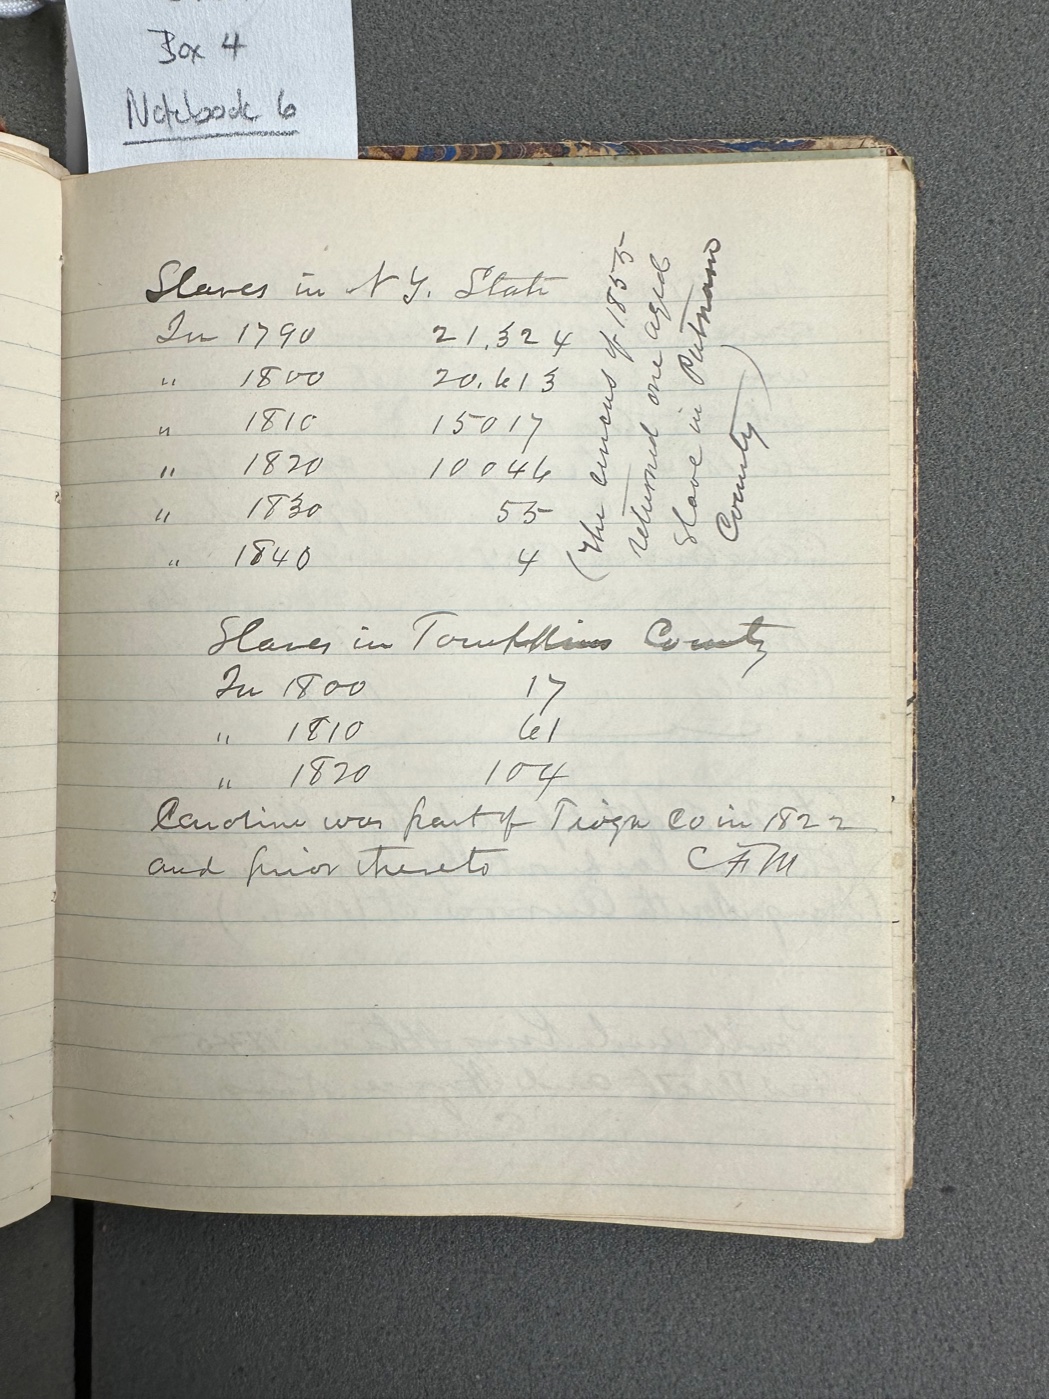 Box 4
Notebook 6
Slaves in N Y. State
In 1790 21,324
" 1800 20,613
" 1810 15017
" 1820 10046
" 1830 55
" 1840 4
(The census of 1855
returned one aged
slave in Putnam
County)
Slaves in Tompkins County
In 1800 17
" 1810 61
" 1820 104
Caroline was part of Tioga Co in 1822
and prior thereto C F M